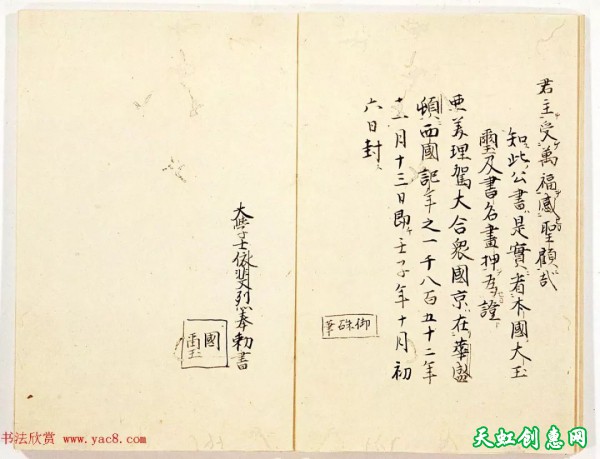 君主受萬福感聖顧哉
知此公書是實者本國大玉
璽及書名畫押為證
亜美理駕大合衆國京在華盛
頓西國記年之一千八百五十二年
十一月十三日即壬子年十月初
六日封
御硃筆
大學士依斐烈奉勅書
國璽
书法欣赏 www.yac8.com
天虹创意网